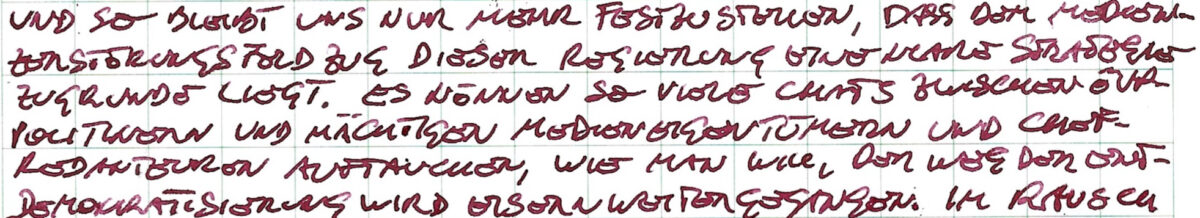 UND SO BLEIBT UNS NUR MEHR FESTZUSTELLEN, DASS DEM MEDIEN-
ZERSTÖRUNGSFELDZUG DIESER REGIERUNG EINE KLARE STRATEGIE
ZUGRUNDE LIEGT. ES KÖNNEN SO VIELE CHATS ZWISCHEN ÖVP-
POLITIKERN UND MÄCHTIGEN MEDIENEIGENTÜMERN UND CHEF-
REDAKTEUREN AUFTAUCHEN, WIE MAN WILL, DER WEG DER ENT-
DEMOKRATISIERUNG WIRD EISERN WEITERGEGANGEN. IM RAUSCH